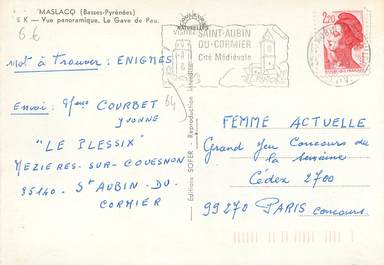 MASLACQ (Basses-Pyrénées)
S K — Vue panoramique. Le Gave de Pau.
6€
Mot à Trouver : ENIGMES
Envoi : Mme COURBET
YVONNE
"LE BLESSIX"
MEZIERES-SUR-COUESNON
35140 - St AUBIN-DU-
CORMIER
64
Editions SOFER - Reproduction interdite
NATURELLES
VISITEZ
SAINT-AUBIN
DU-CORMIER
Cité Médiévale
2,20
FEMME ACTUELLE
Grand Jeu Concours de
la semaine
Cédex 2700
99270 PARIS CONCOURS.